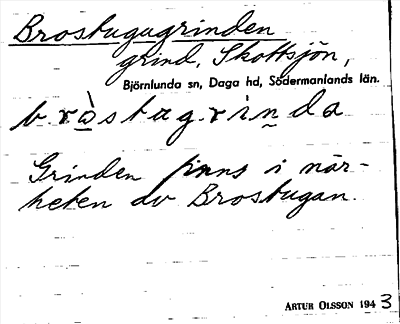 Brostugugrinden
grind, Skottsjön,
Björnlunda sn, Daga hd, Södermanlands län.
bròstagrinda
Grinden finns i när-
heten av Brostugan.
ARTUR OLSSON 1943